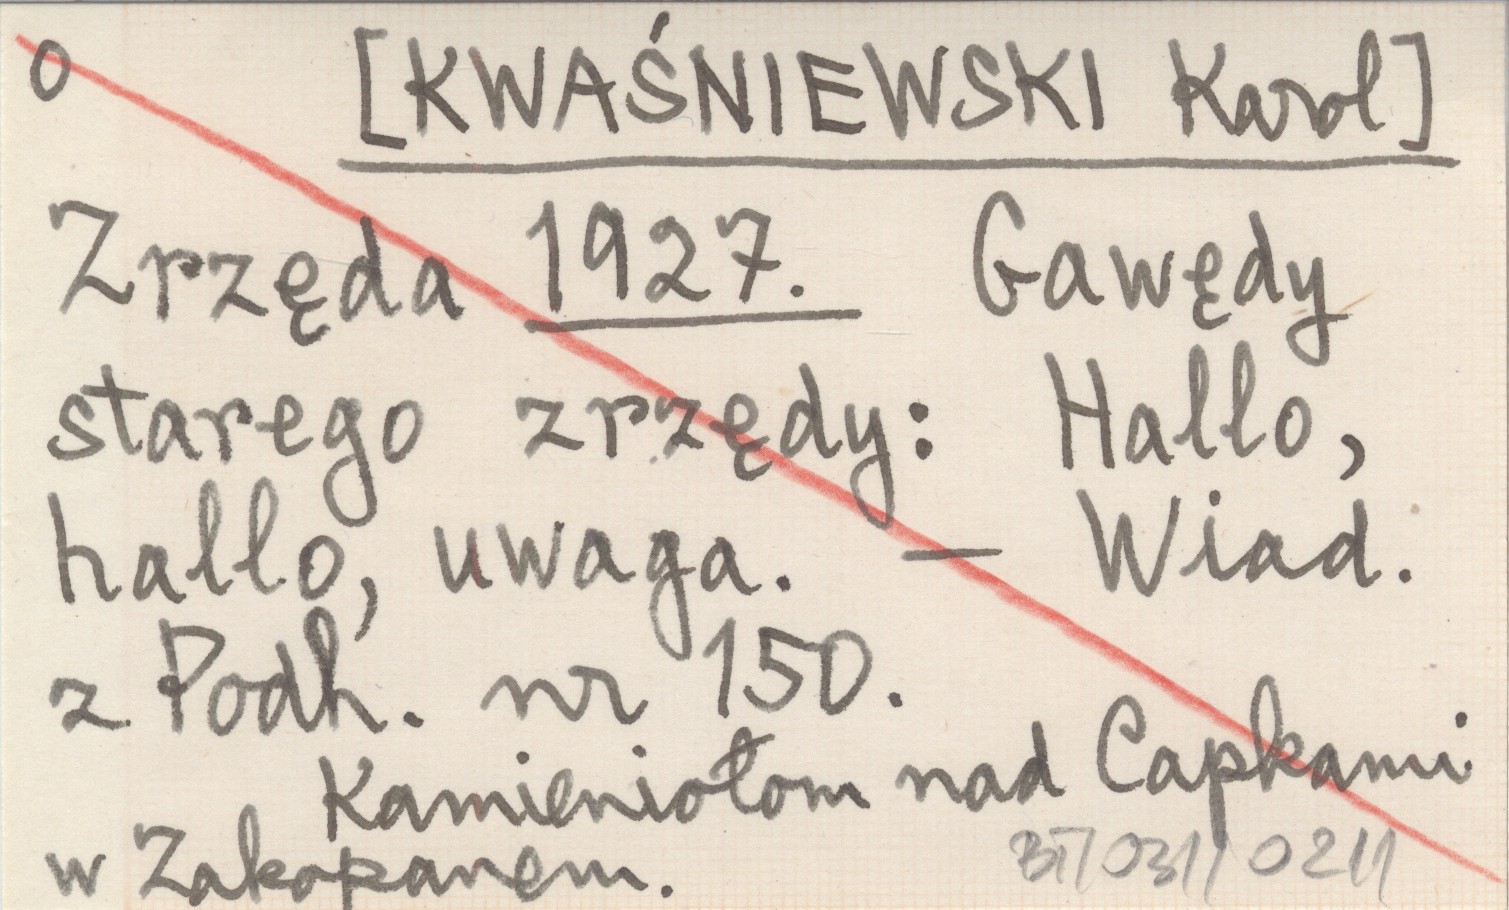 o [KWAŚNIEWSKI Karol]
Zrzęda 1927. Gawędy
starego zrzędy: Hallo,
hallo, uwaga. — Wiad.
z Podh. nr 150.
Kamieniołom nad Capkami
w Zakopanem.
BT/031/0211